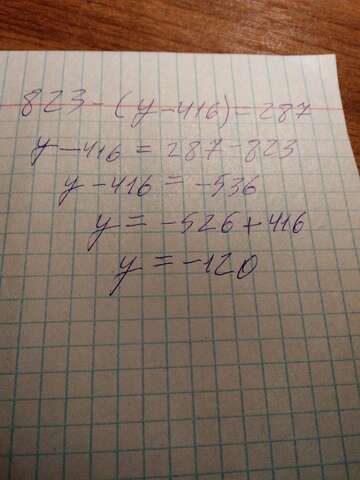 823-(y-416)=287
y-416=287-823
y-416=-536
y=-526+416
y=-120